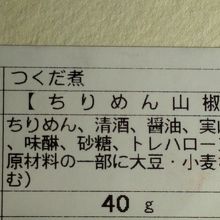 つくだ煮
【ちりめん山椒
ちりめん、清酒、醤油、実山
、味醂、砂糖、トレハロース
原材料の一部に大豆・小麦を
む）
40 g